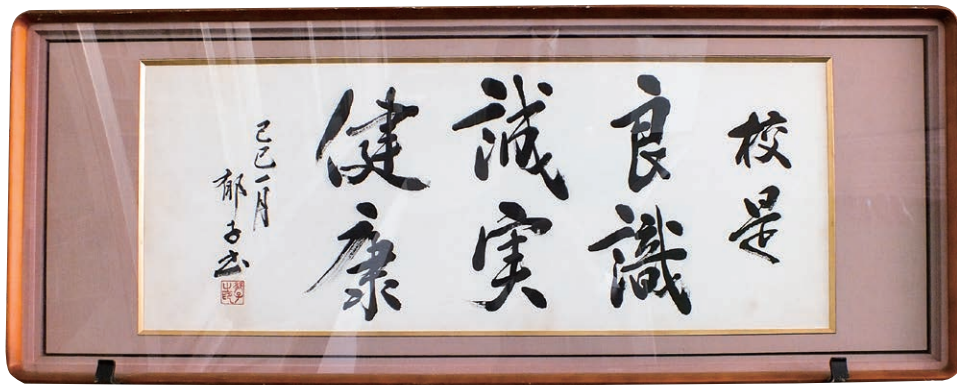 校是
良識
誠実
健康
己巳一月
郁子書